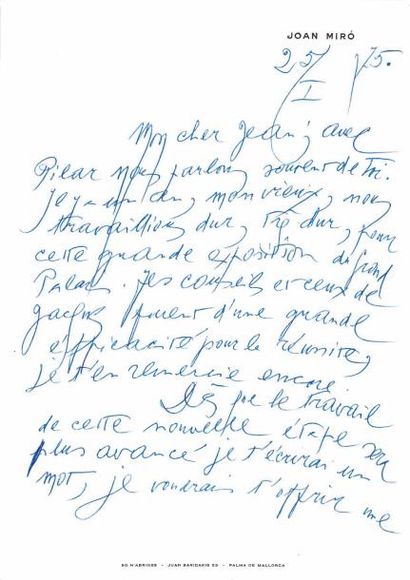 JOAN MIRÓ
25/I/75.
Mon cher Jean, avec
Pilar nous parlons souvent de toi.
Il y a un an, mon vieux, nous
travaillions dur, très dur, pour
cette grande exposition du Grand
Palais. Tes conseils et ceux de
Jacques furent d'une grande
efficacité pour la réussite,
je t'en remercie encore.
Dès que le travail
de cette nouvelle étape sera
plus avancé je t'écrirai un
mot, je voudrais t'offrir une
SO N'ABRINES - JUAN SARIDAKIS 29 - PALMA DE MALLORCA